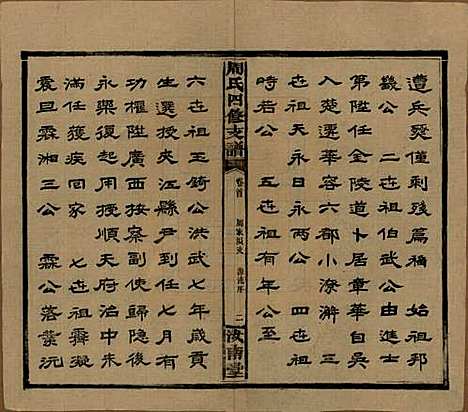 遭兵燹僅剩殘篇稱　始祖邦
畿公　二世祖元俊公由進士
第陞任金陵道卜居章華自吳
入楚選華容六郡小漆澥　三
世祖永日永兩公　四世祖
時若公　五世祖　年公至
周氏四修支譜
卷首
二
汝南堂
六世祖玉錡公洪武七年歲貢
生選授夾江縣尹到任七月有
功權陞廣西按察副使歸隱後
永樂復起用授順天府治中未
滿任獲炎　七世祖霽凝
震旦霖湘三公　霖公落業沅